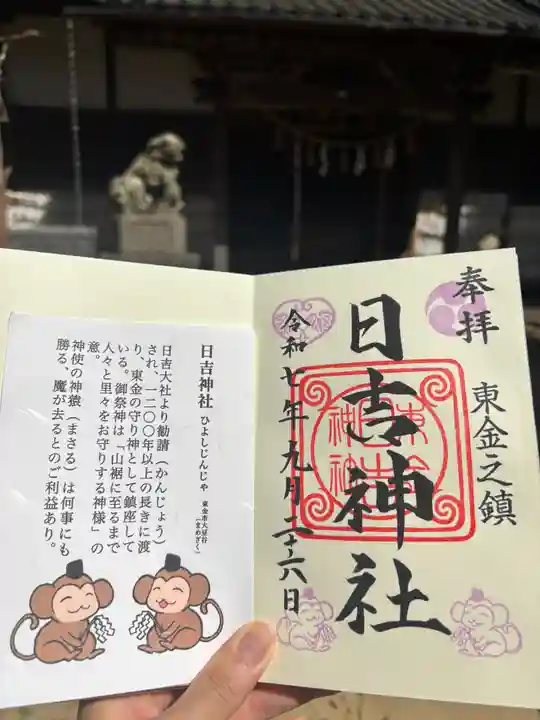 奉拝
東金之鎮
日吉神社
令和七年九月二十六日
日吉神社 ひよしじんじゃ
東金市大豆谷
(まめざく)
日吉大社より勧請(かんじょう)
され、一二〇〇年以上の長きに渡
り、東金の守り神として鎮座して
いる。御祭神は「山裾に至るまで
人々と里々をお守りする神様」の
意。
神使の神猿(まさる)は何事にも
勝る、魔が去るとのご利益あり。